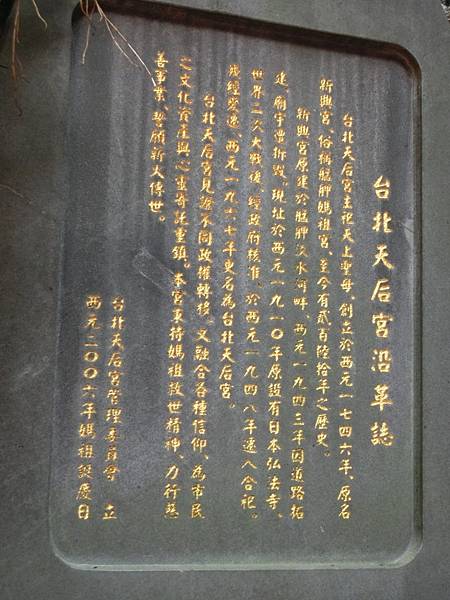 台北天后宮沿革誌
台北天后宮主祀天上聖母，創立於西元一七四六年，原名
新興宮，俗稱艋舺媽祖宮，至今有貳百陸拾年之歷史。
新興宮原建於艋舺淡水河畔，西元一九四三年因道路拓
建，廟宇遭拆毀。現址於西元一九一〇年原設有日本弘法寺，
世界二次大戰後，經政府核准，於西元一九四八年遷入合祀。
幾經變遷，西元一九六七年更名為台北天后宮。
台北天后宮見證不同政權轉移，又融合各種信仰，為市民
之文化資產與心靈寄託重鎮。本宮秉持媽祖救世精神，力行慈
善事業，誓願薪火傳世。
台北天后宮管理委員會 立
西元二〇〇六年媽祖誕慶日